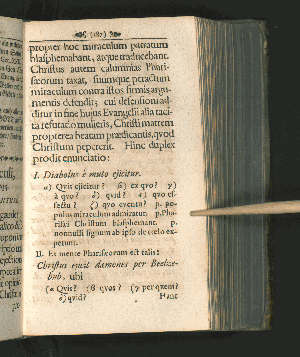 (187)
propter hoc miraculum patratum
blasphemabant, atque traducebant.
Christus autem calumnias Phari-
sæorum taxat, suumque peractum
miraculum contra istos firmis argu-
mentis defendit; cui defensioni ad-
ditur in fine hujus Evangelii alia faci-
ta refutatio mulieris, Christi matrem
propterea beatam prædicantis, quod
Christum pepererit. Hinc duplex
prodit enunciatio:
I. Diabolus è muto ejicitur.
α) Qvis ejicitur? β) ex qvo? γ)
à qvo? δ) quid? ε) qvo ef-
fectu? ζ) qvo eventu? p. po-
pulus miraculum admiratur. p. Pha-
risæi Christum blasphemant. p.
nonnulli signum ab ipso de cœlo ex-
petunt.
II. Ex mente Pharisæorum est talis:
Christus ejicit dæmones per Beelze-
bub, ubi
(α Qvis? (β qvos? (γ per quem?
δ) quid?
Hanc